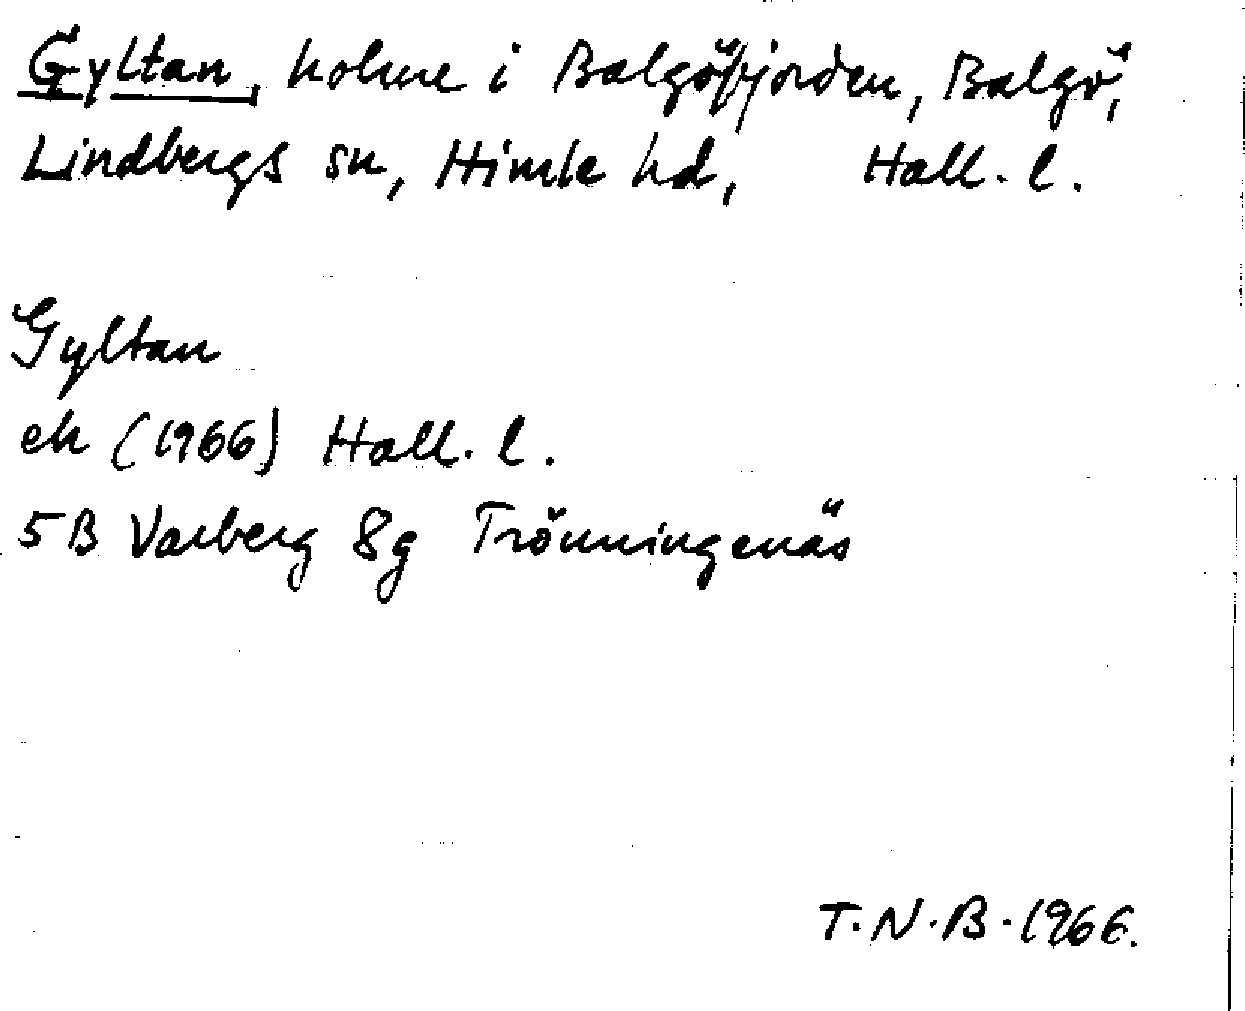 Gyltan, holme i Balgöfjorden, Balgö,
Lindbergs sn, Himle hd, Hall. l.
Gyltan
ek (1966) Hall. l.
5B Varberg 8g Trönningenäs
T.N.B. 1966.